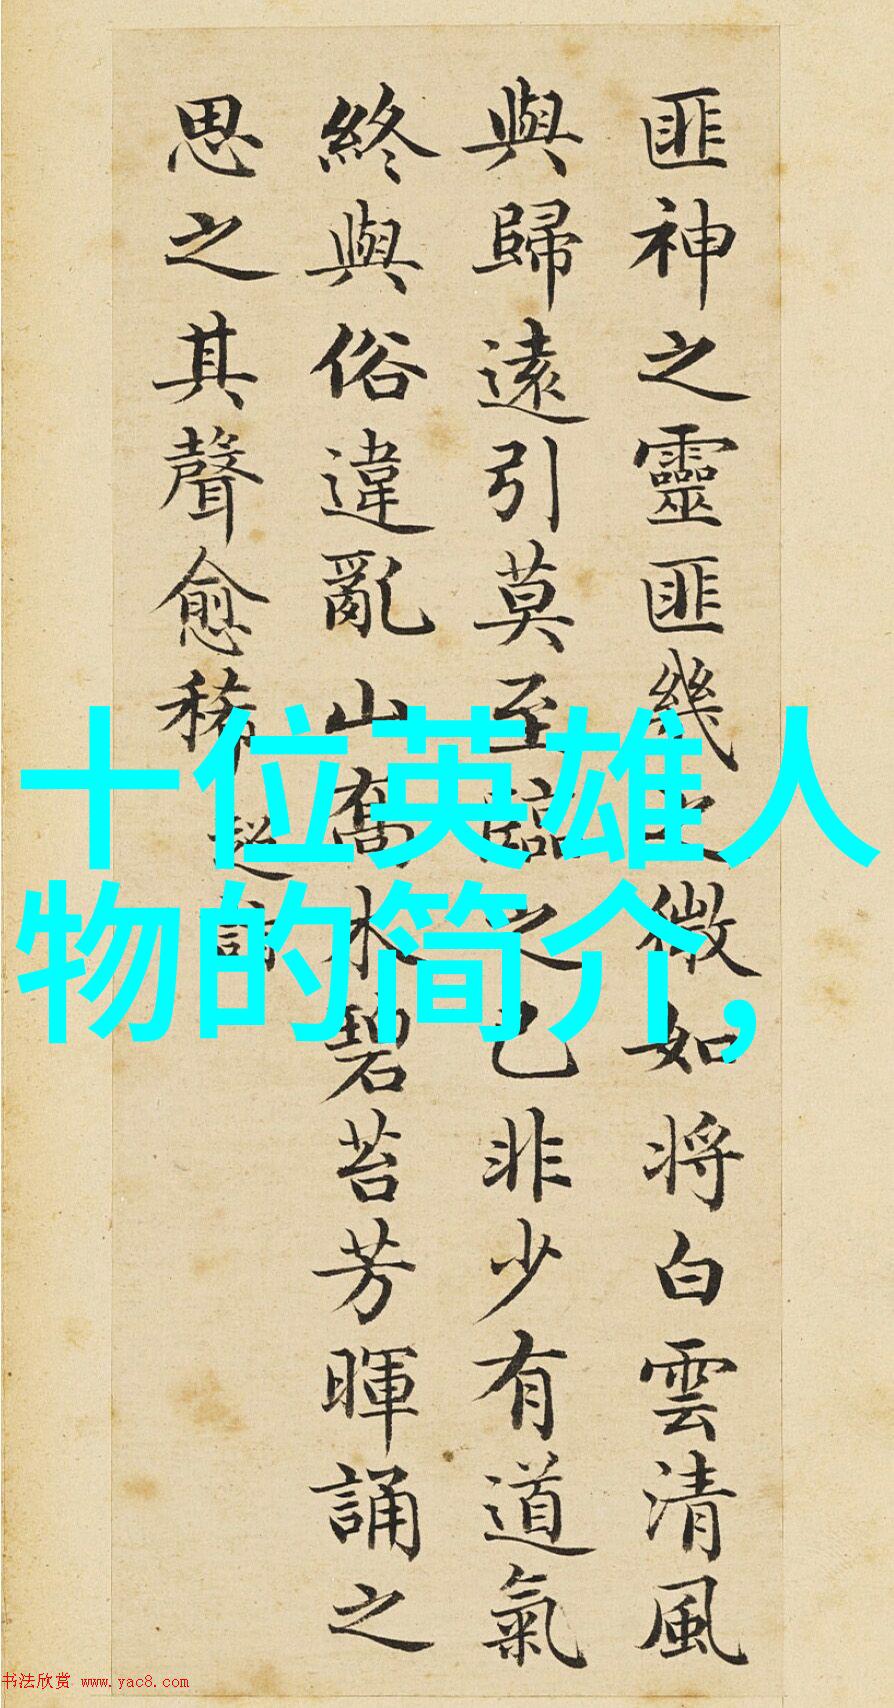 匪神之靈匪幾之微如將白雲清風
與歸遠引莫至臨之已非少有道氣
終與俗違亂山喬木碧苔芳暉誦之
思之其聲愈稀
超詣
十位英雄人
物的简介,
书法欣赏 www.yac8.com